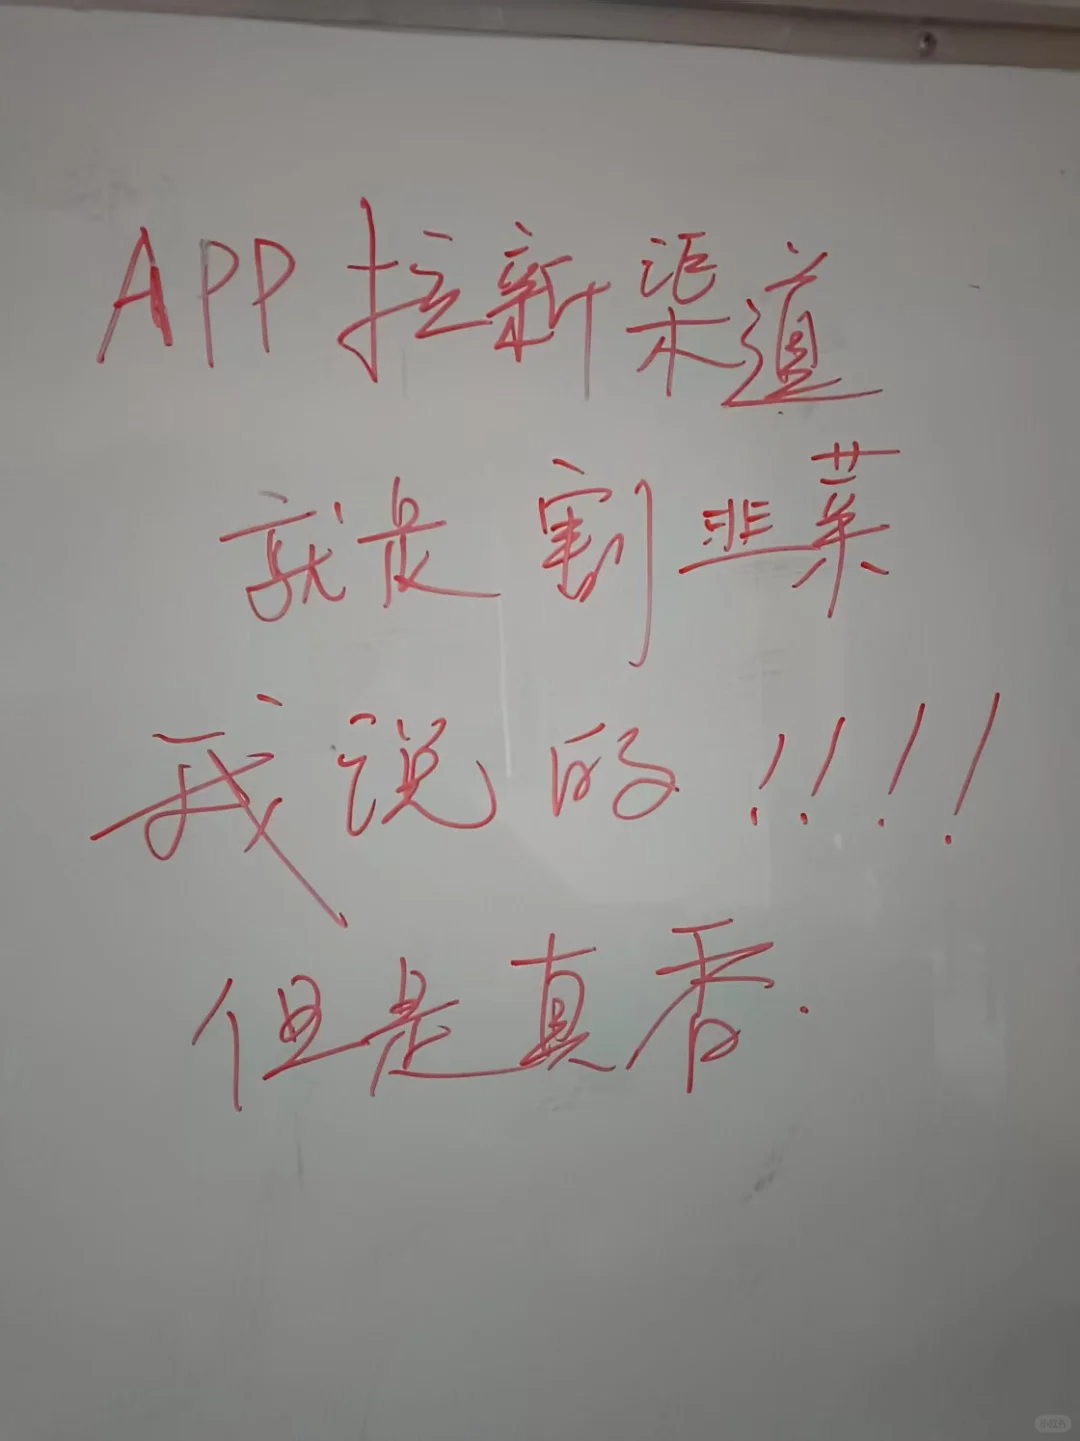 APP拉新渠道
就是割韭菜
我说的!!!!
但是真香.
小红书